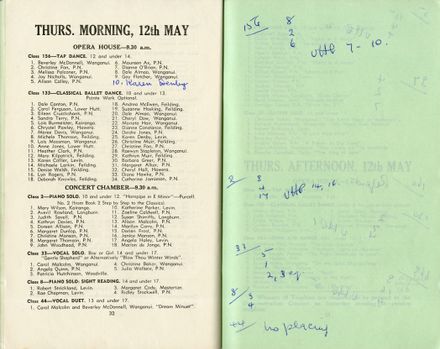 THURS. MORNING, 12th MAY
OPERA HOUSE—8.30 a.m.
Class 156—TAP DANCE, 12 and under 14.
1. Beverley McDonnell, Wanganui.
2. Christine Fox, P.N.
3. Melissa Falconer, P.N.
4. Joy Nicholls, Wanganui.
5. Alison Calley, P.N.
6. Maureen Ax, P.N.
7. Dianne O'Brien, P.N.
8. Dale Almao, Wanganui.
9. Gay Fletcher, Wanganui.
10. Karen Denby
Class 133—CLASSICAL BALLET DANCE, 10 and under 13.
Pointe Work Optional.
1. Dale Canton, P.N.
2. Carol Ferguson, Lower Hutt.
4. Sandra Terry, P.N.
5. Lois Burmeister, Kairanga.
6. Chrystel Pawley, Hawera.
8. Michele Thomson, Feilding.
11. Heather Clark, P.N.
12. Mary Kilpatrick, Feilding.
13. Karen Collier, Levin.
14. Michaele Lind, Feilding.
15. Denise Webb, Feilding.
16. Lyn Rogers, P.N.
18. Deborah Knowles, Feilding.
18. Andrea McEwen, Feilding.
19. Suzanne Hosking, Feilding.
20. Dale Almao, Wanganui.
21. Cheryl Dow, Wanganui.
22. Marina Hair, Wanganui.
23. Dianne Constance, Feilding.
24. Deidre Jones, P.N.
25. Karen Denby, Levin.
26. Christine Muir, Feilding.
27. Christine Fox, P.N.
28. Raewyn Stapleton, Wanganui.
29. Kathryn Muir, Feilding.
30. Barbara Greer, P.N.
31. Margaret Alker, P.N.
32. Cheryl Hall, Hawera.
33. Diane Hawke, P.N.
34. Catherine Johanson, Feilding.
CONCERT CHAMBER—8.30 a.m.
Class 2—PIANO SOLO, 10 and under 12. "Hornpipe in E Minor"—Purcell
No. 2 (from Book 2 Step by Step to the Classics)
1. Mary Wilson, Kairanga.
2. Averil Rowland, Longburn.
3. Judith Spvell, P.N.
4. Kathryn Davies, P.N.
5. Doreen Allison, P.N.
6. Margaret Dunlop, P.N.
7. Christine Manson, P.N.
8. Margaret Thomson, P.N.
9. John Woodhead, P.N.
10. Katherine Parker, Levin.
11. Eveline Caldwell, P.N.
12. Susan Shannills, Longburn.
13. Alison Malcolm, P.N.
14. Marilyn Corry, P.N.
15. Doreen Frost, P.N.
16. Janice Manson, P.N.
17. Angela Haley, Levin.
18. Marion de Jonge, P.N.
Class 33—VOCAL SOLO, Boy or Girl 14 and under 17.
"Gentle Shepherd" or Alternatively "Blow Thou Winter Winds"
1. Carol Malcolm, Wanganui.
2. Angela Quinn, P.N.
3. Patricia Hutchinson, Woodville.
4. Christine Baker, Wanganui.
5. Julia Wallace, P.N.
Class 8—PIANO SOLO: SIGHT READING, 14 and under 17.
1. Robert Strickland, Levin.
2. Rae Chapman, Levin.
3. Margaret Cody, Masterton.
4. Ridley Stockwell, P.N.
Class 44—VOCAL DUET, 13 and under 17.
1. Carol Malcolm and Beverley McDonnell, Wanganui. "Dream Minuet".
32
156
8
2
6
7 - 10.
2
8
4
14
14, 10.
33
5
1
8
3
4
44 no placing